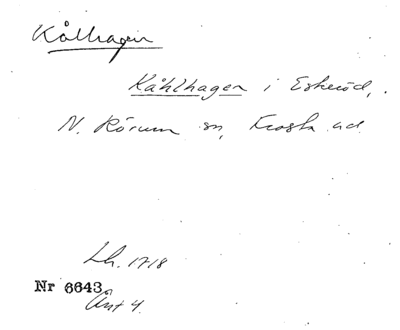 Kålhagen
Kåhlhagen i Eskeröd,.
N. Rörum sn, Frosta hd
Lh. 1718
Nr 6643
Änt 4.